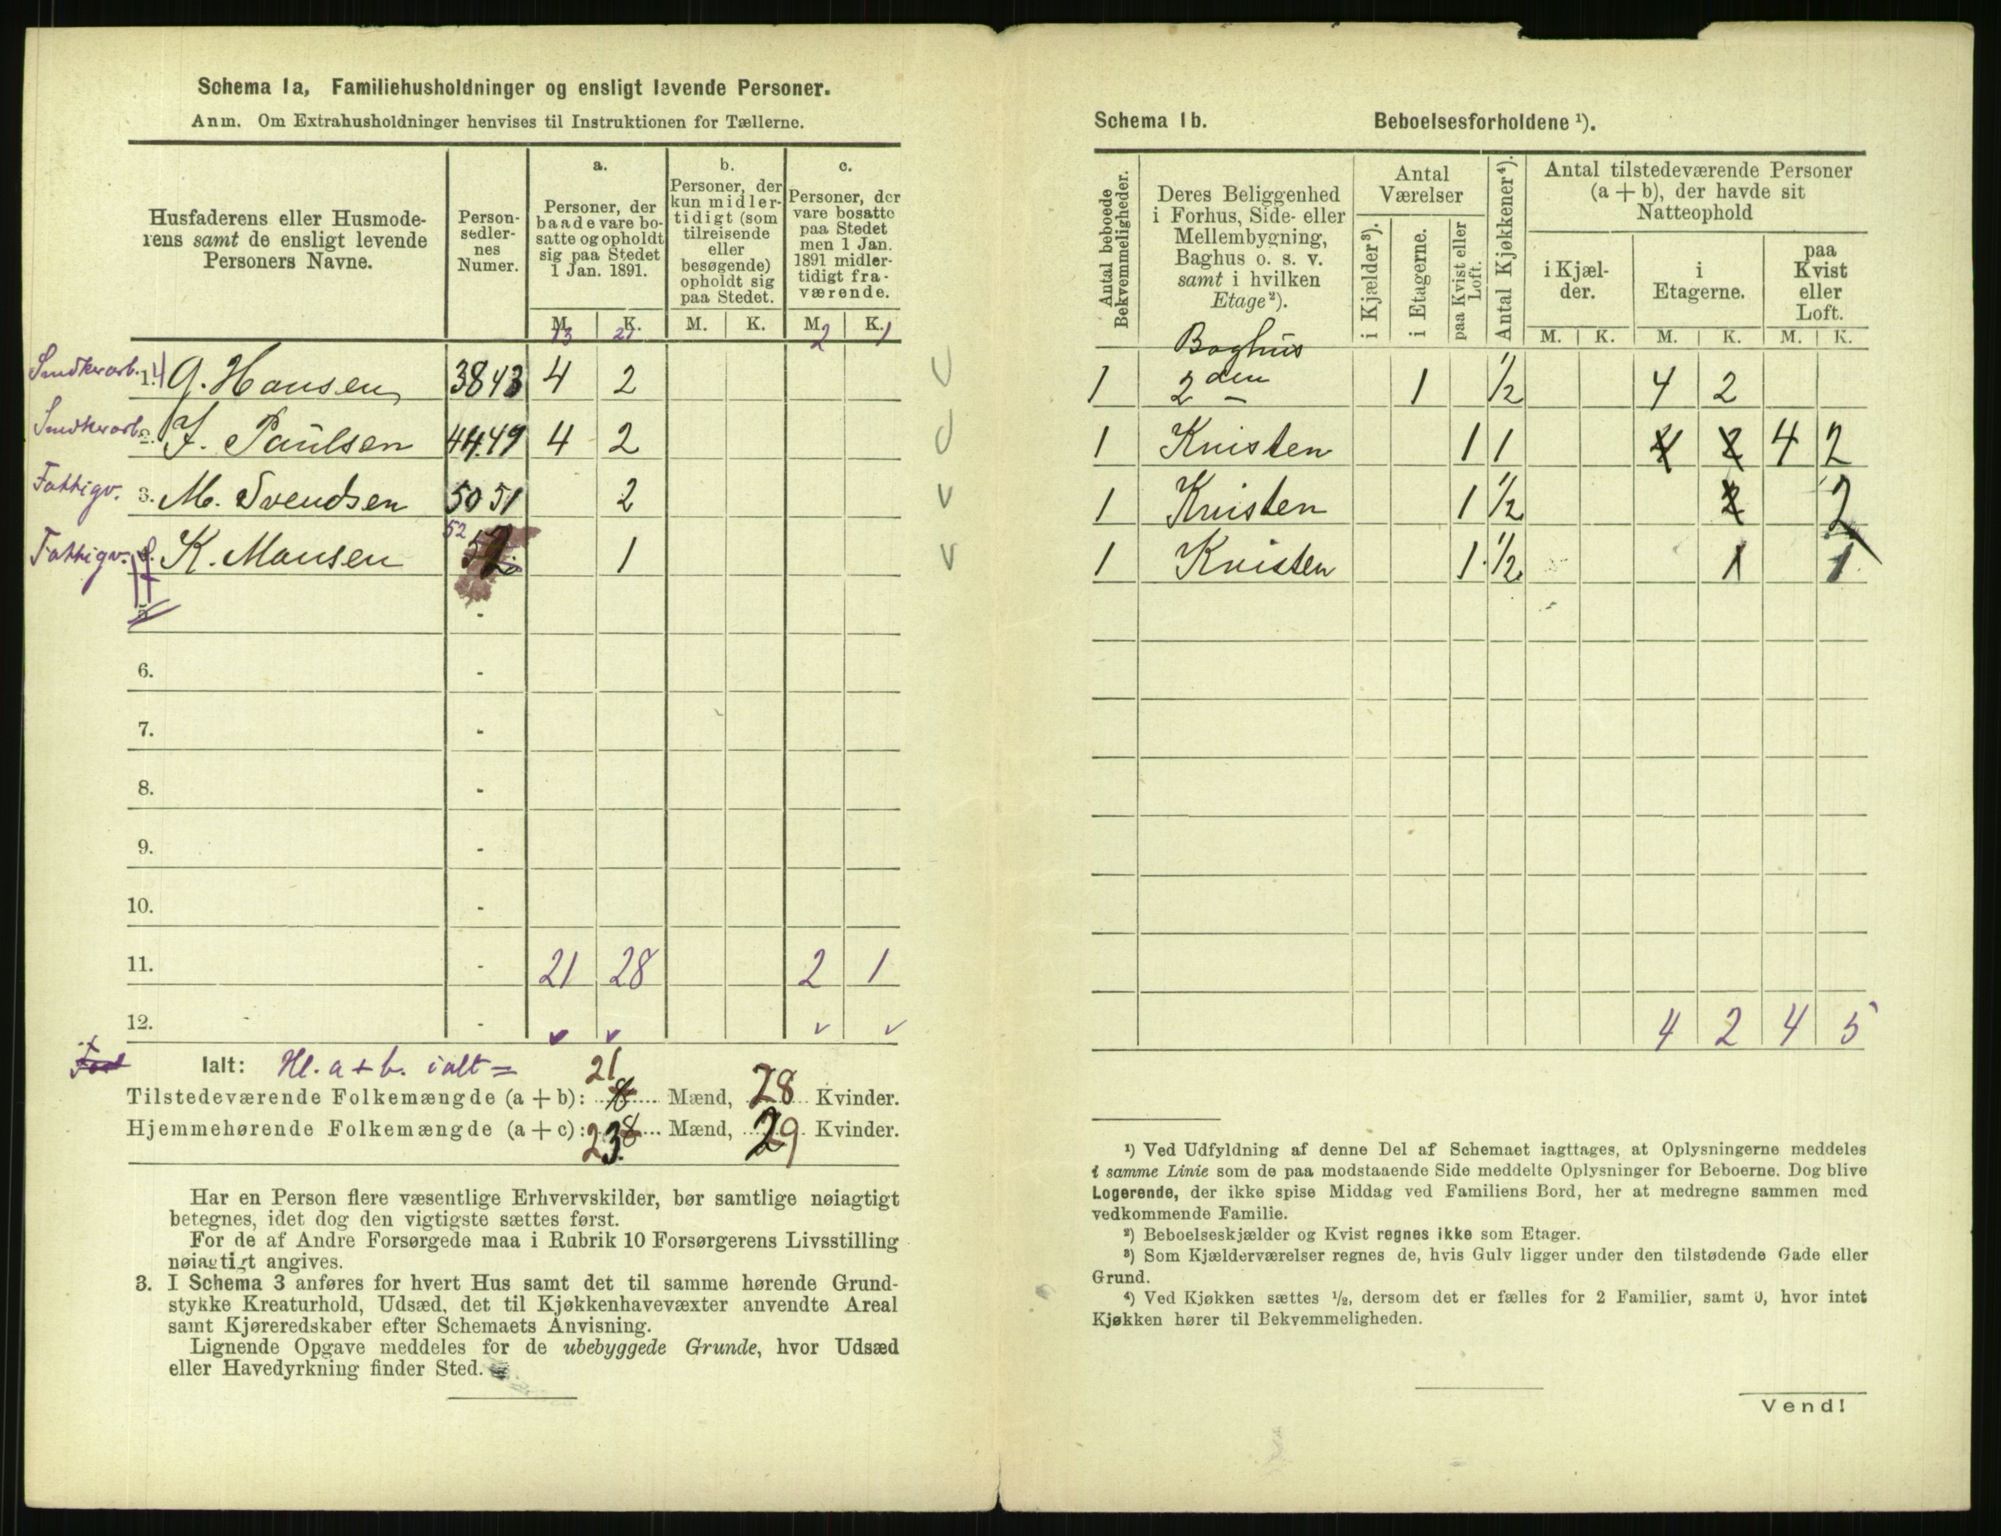 Schema 1a, Familiehusholdninger og ensligt levende Personer.
Anm. Om Extrahusholdninger henvises til Instruktionen for Tællerne.
Husfaderens eller Husmoderens samt de ensligt levende Personers Navne.
Personsedlernes Numer.
a. Personer, der baade vare bosatte og opholdt sig paa Stedet 1 Jan. 1891.
b. Personer, der kun midlertidigt (som tilreisende eller besøgende) opholdt sig paa Stedet.
c. Personer, der vare bosatte paa Stedet men 1 Jan. 1891 midlertidigt fraværende.
M. K. M. K. M. K.
13 21 2 1
Smdkvarb. 1. G. Hansen 38 43 4 2
Smdkvarb. 2. J. Paulsen 44.49 4 2
Fattigv. 3. M. Svendsen 50 51 2
Fattigv. K. Monsen 52 52 1
5.
6. -
7. -
8. -
9. -
10. -
11. - 21 28 2 1
12. -
Ialt: Hl. a + b. ialt =
Tilstedeværende Folkemængde (a + b): 21 Mænd, 28 Kvinder.
Hjemmehørende Folkemængde (a + c): 23 Mænd, 29 Kvinder.
Har en Person flere væsentlige Erhvervskilder, bør samtlige nøiagtigt
betegnes, idet dog den vigtigste sættes først.
For de af Andre Forsørgede maa i Rubrik 10 Forsørgerens Livsstilling
nøiagtigt angives.
3. I Schema 3 anføres for hvert Hus samt det til samme hørende Grund-
stykke Kreaturhold, Udsæd, det til Kjøkkenhavevæxter anvendte Areal
samt Kjøreredskaber efter Schemaets Anvisning.
Lignende Opgave meddeles for de ubebyggede Grunde, hvor Udsæd
eller Havedyrkning finder Sted.
Schema 1b. Beboelsesforholdene ¹).
Antal beboede Bekvemmeligheder.
Deres Beliggenhed i Forhus, Side- eller Mellembygning, Baghus o. s. v. samt i hvilken Etage ²).
Antal Værelser
i Kjælder ³).
i Etagerne.
paa Kvist eller Loft.
Antal Kjøkkener ⁴).
Antal tilstedeværende Personer (a + b), der havde sit Natteophold
i Kjælder.
i Etagerne.
paa Kvist eller Loft.
M. K. M. K. M. K.
Baghus
1 2den 1 1/2 4 2
1 Kvisten 1 1 4 2 4 2
1 Kvisten 1 1/2 2 2
1 Kvisten 1 1/2 1 1
4 2 4 5
¹) Ved Udfyldning af denne Del af Schemaet iagttages, at Oplysningerne meddeles
i samme Linie som de paa modstaaende Side meddelte Oplysninger for Beboerne. Dog blive
Logerende, der ikke spise Middag ved Familiens Bord, her at medregne sammen med
vedkommende Familie.
²) Beboelseskjælder og Kvist regnes ikke som Etager.
³) Som Kjælderværelser regnes de, hvis Gulv ligger under den tilstødende Gade eller
Grund.
⁴) Ved Kjøkken sættes ½, dersom det er fælles for 2 Familier, samt 0, hvor intet
Kjøkken hører til Bekvemmeligheden.
Vend!